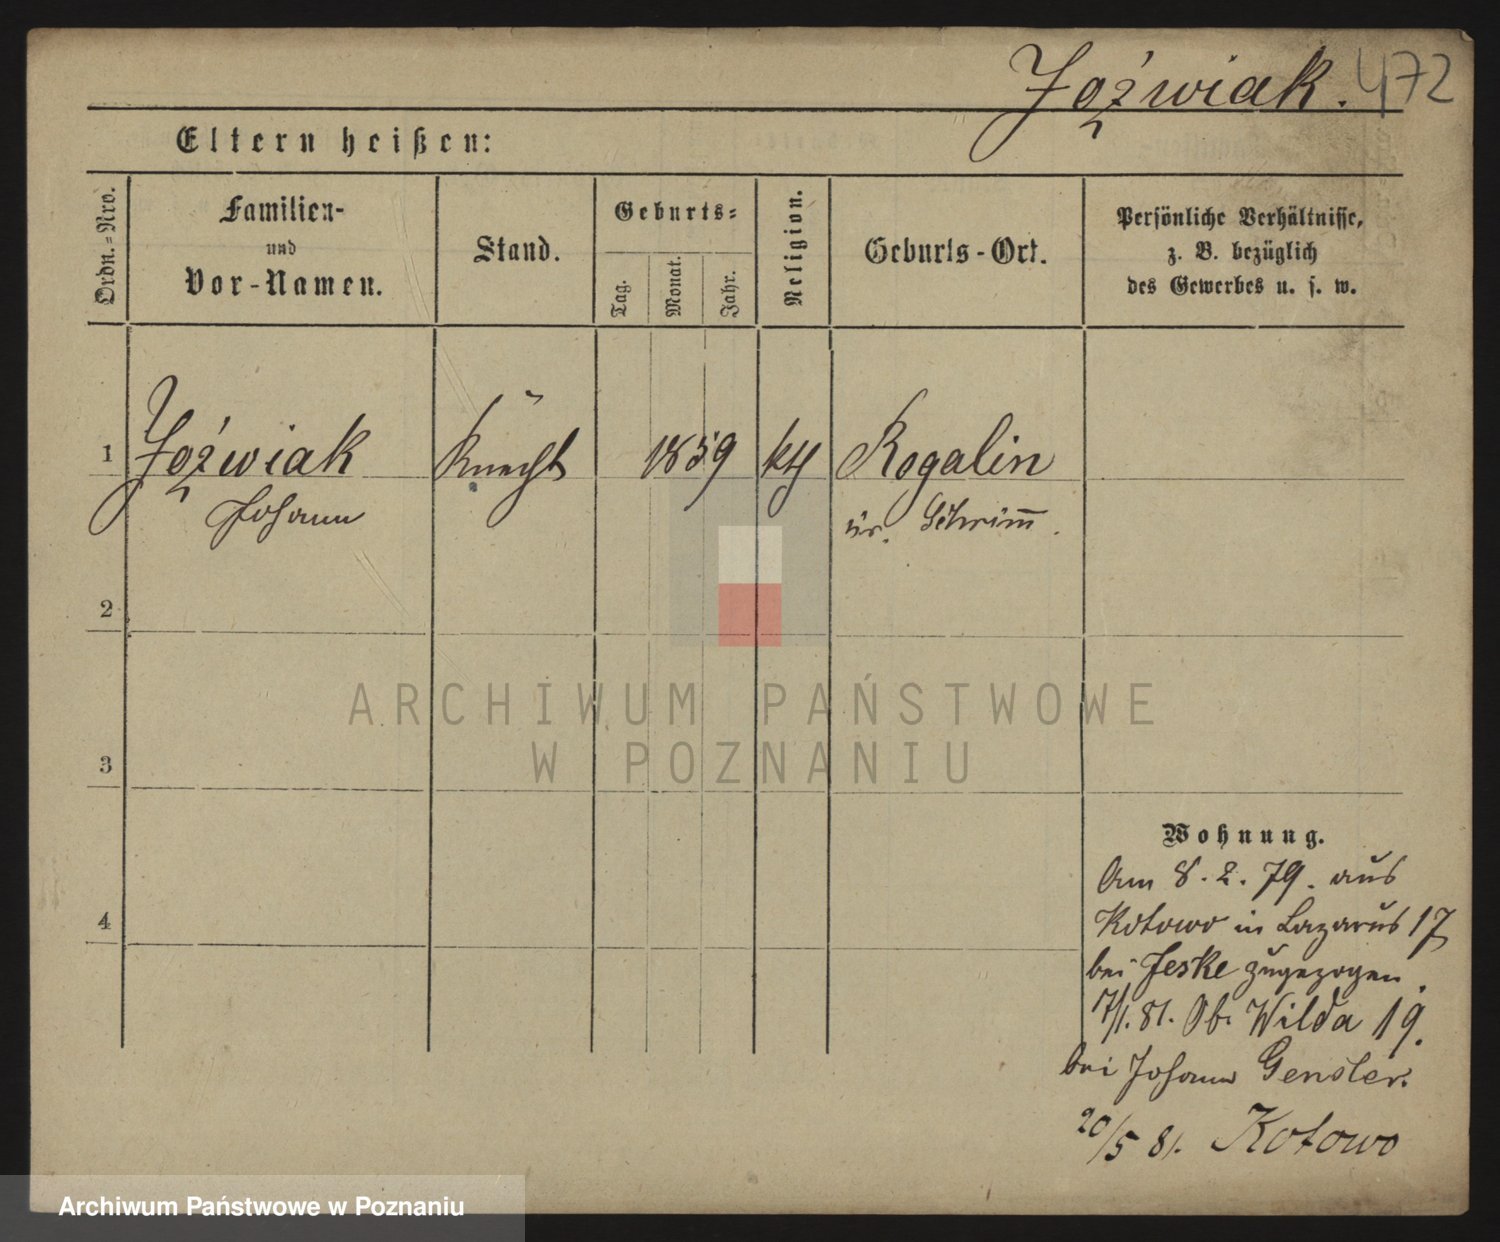 Joźwiak. 472
Eltern heißen:
Ordn.=Nro.
Familien-
und
Vor-Namen.
Stand.
Geburts=
Tag.
Monat.
Jahr.
Religion.
Geburts-Ort.
Persönliche Verhältnisse,
z. B. bezüglich
des Gewerbes u. s. w.
1 Joźwiak Knecht 1859 kth Rogalin
Johann Kr. Schrimm.
2
ARCHIWUM PAŃSTWOWE
W POZNANIU
3
4
Wohnung.
Am 8. 2. 79. aus
Kotowo in Lazarus 17
bei Jeske zugezogen.
17/1. 81. Ob. Wilda 19.
bei Johann Gensler.
20/5 81. Kotowo
Archiwum Państwowe w Poznaniu